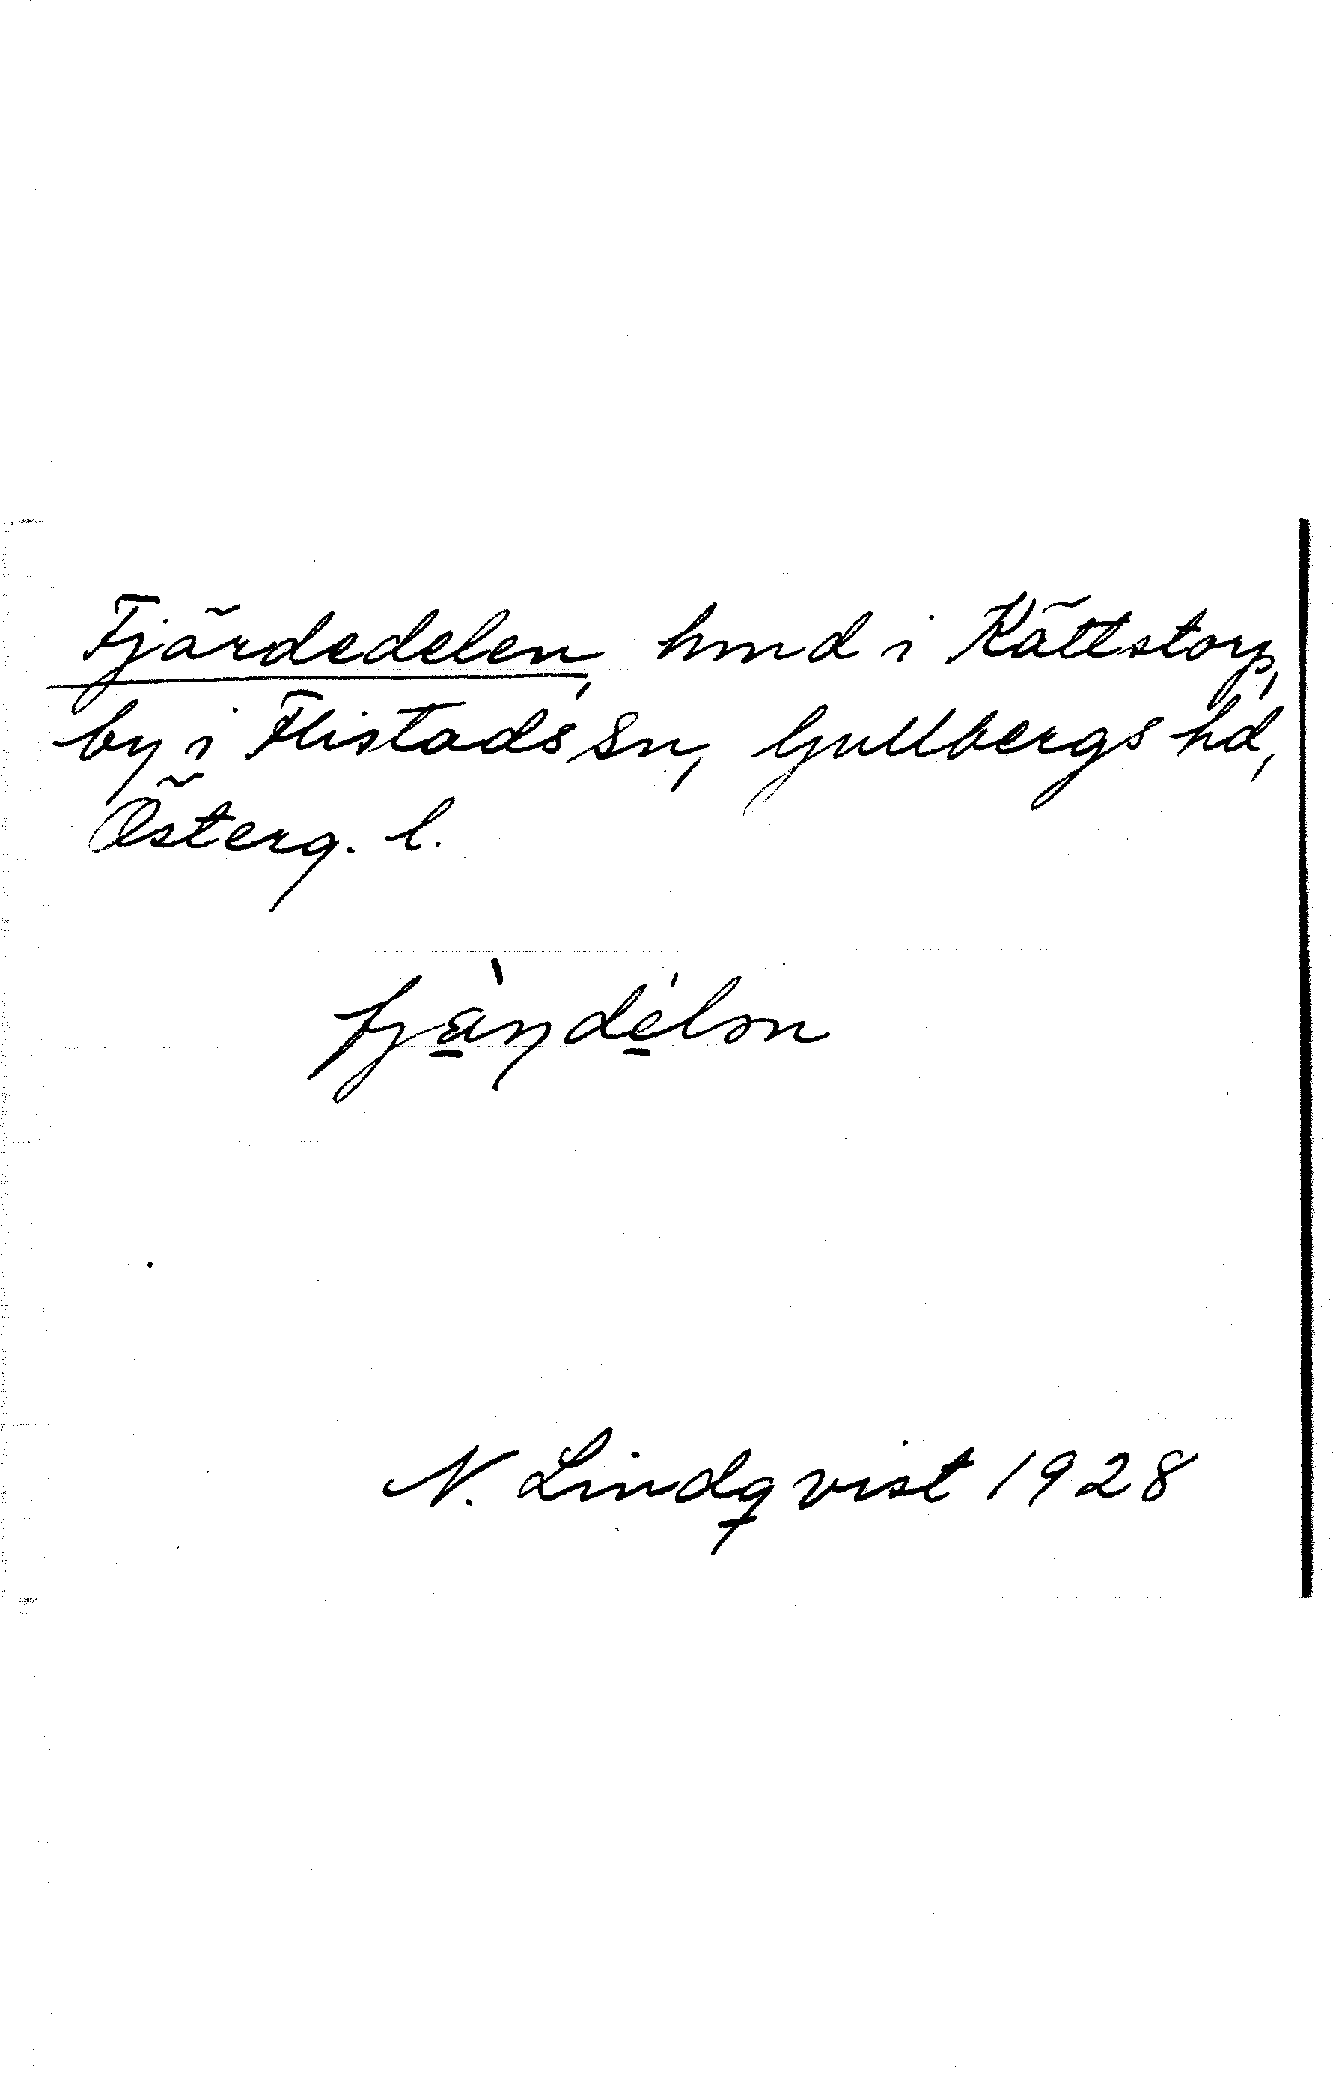 Fjärdedelen, hmd i Kättstorp,
by i Flistads sn, Gullbergs hd,
Österg. l.
fjä̀ṇdélən
N. Lindqvist 1928